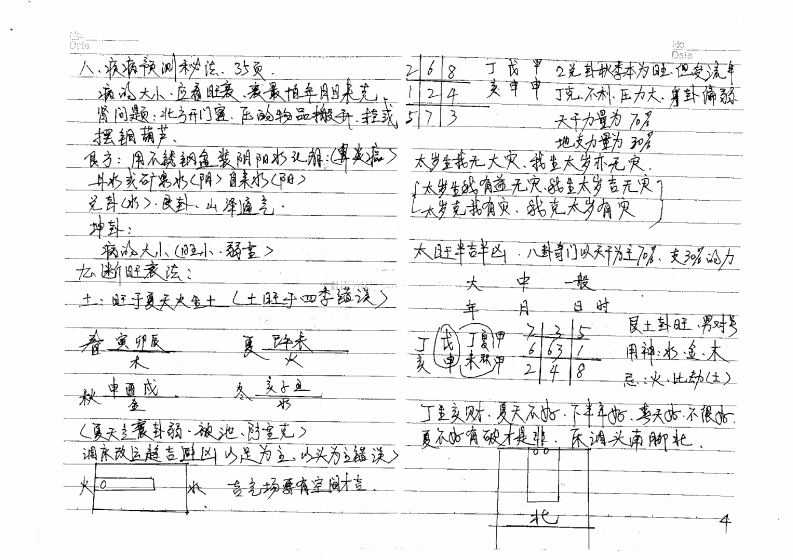 No.
Date
八、疾病预测秘法、35页.
病的大小、应看旺衰、衰最怕年月日来克.
肾问题：北方开门窗、压的物品搬开、挂或
摆铜葫芦.
良方：用不锈钢盒装阴阳水孔雀：(鼻炎癌)
井水或矿泉水(阴)自来水(阳)
兑卦(水)、艮卦、山泽通气.
坤卦：
病的大小(旺小、弱重)
九、断旺衰法：
土：旺于夏天火生土(土旺于四季错误)
春 寅卯辰 木
夏 巳午未 火
秋 申酉戌 金
冬 亥子丑 水
(夏天生衰卦弱、被池、阴重克)
调床改运趋吉避凶以足为主，以头为主错误)
火 0 水 吉气场要有空间才吉.
No.
Date
2 6 8 丁 戊 甲 2兑卦秋季本为旺、但受流年
1 2 4 亥 申 申 丁克、不利、压力大、身卦偏弱
5 7 3 天干力量为70%
地支力量为30%
太岁生我无大灾、我生太岁亦无灾.
太岁生我有道无灾、我生太岁吉无灾
太岁克我有灾、我克太岁有灾
太旺半吉半凶、八卦奇门以天干为主70%、支30%的力
大 中 一般
年 月 日时
丁 戊 丁 甲 7 2 5 艮土卦旺、男对号
亥 申 未 申 6 63 1 用神：水、金、木
2 4 8 忌：火、比劫(土)
丁生亥财、夏天不好、下半年好、春天好、不很好.
夏不好有破才是非、床调头南脚北.
00
北
4